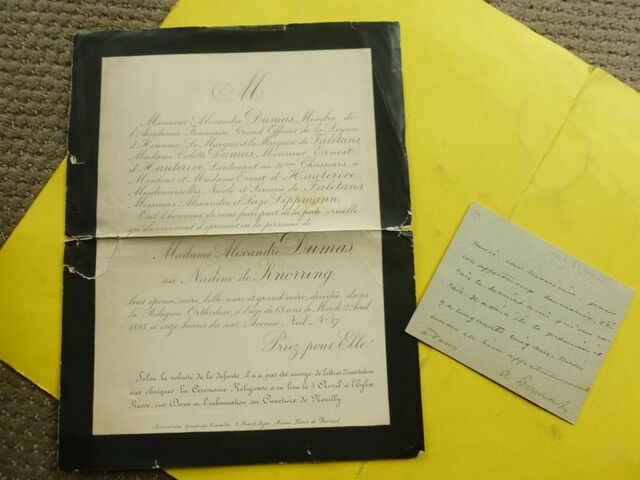 M
Monsieur Alexandre Dumas, Membre de
l'Académie Française, Grand Officier de la Légion
d'Honneur, Le Marquis et la Marquise de Faletans,
Madame Colette Dumas, Monsieur Ernest
d'Hauterive, Lieutenant au 10ème Chasseurs, à
Moulins et Madame Ernest d'Hauterive,
Mesdemoiselles Nicole et Simone de Faletans,
Messieurs Alexandre et Serge Lippmann,
Ont l'honneur de vous faire part de la perte cruelle
qu'ils viennent d'éprouver en la personne de
Madame Alexandre Dumas
née Nadine de Knorring,
leur épouse, mère, belle mère et grand'mère, décédée, dans
la Religion Orthodoxe, à l'âge de 68 ans, le Mardi 2 Avril
1895, à onze heures du soir, Avenue Niel, No 17.
Priez pour Elle!
Selon la volonté de la défunte, il n'a pas été envoyé de lettres d'invitation
aux obsèques. La Cérémonie Religieuse a eu lieu le 5 Avril à l'Eglise
Russe, rue Daru et l'inhumation au Cimetière de Neuilly.
Merci, cher
affectueux
le dernier ami qui me
le premier il
y a cinquante cinq ans.
bien affectueusement
à vous
A Dumas